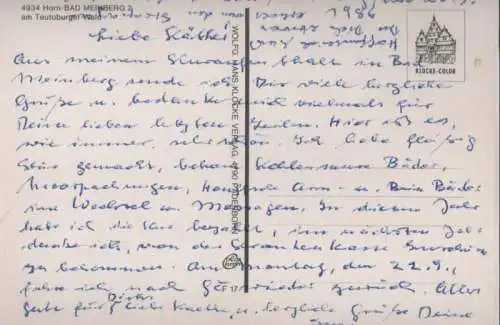 4934 Horn-BAD MEINBERG 2
am Teutoburger Wald
1986
Liebe Käthe!
Aus meinem Kuraufenthalt in Bad
Meinberg sende ich Dir viele herzliche
Grüße u. bedanke mich vielmals für
Deine lieben letzten Zeilen. Hier ist es,
wie immer, sehr schön. Ich habe fleißig
Kur gemacht, bekam Kohlensaure Bäder,
Moorpackungen, Arm- u. Bein Bäder
im Wechsel u. Massagen. In diesem Jahr
habe ich die Kur bezahlt, im nächsten Jahr
denke ich, von der Krankenkasse
zu bekommen. Am Montag, den 22.9.,
fahre ich nach wieder zurück. Alles
Gute für Dich liebe Käthe, u. herzliche Grüße Deine
WOLFG. HANS KLOCKE VERLAG, 4790 PADERBORN
KLOCKE-COLOR